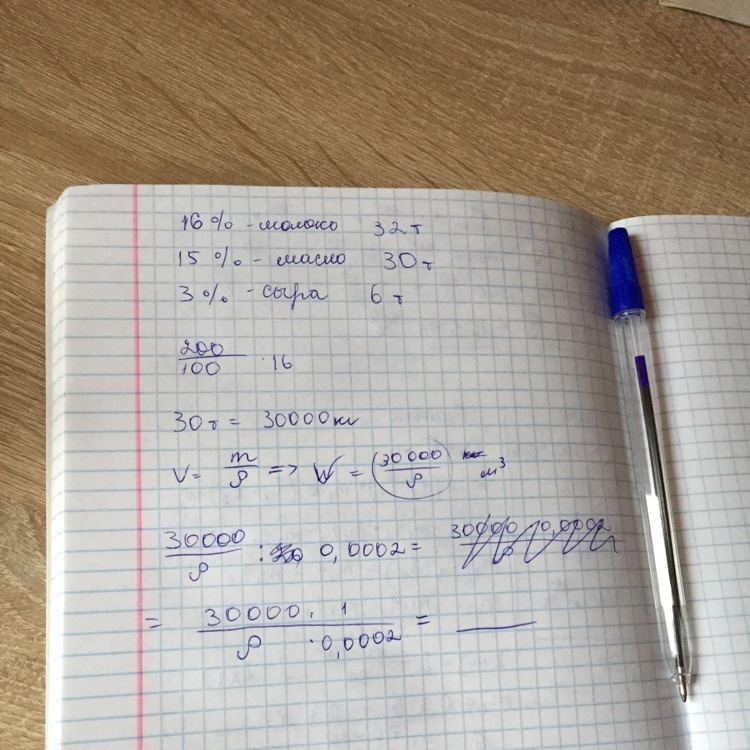 16 % - молоко 32 т
15 % - масло 30 т
3 % - сыра 6 т
200/100 · 16
30 т = 30000 кг
V = m/ρ => V = (30000/ρ) м³
30000/ρ : 0,0002 =
= 30000 · 1 / ρ · 0,0002 = ___